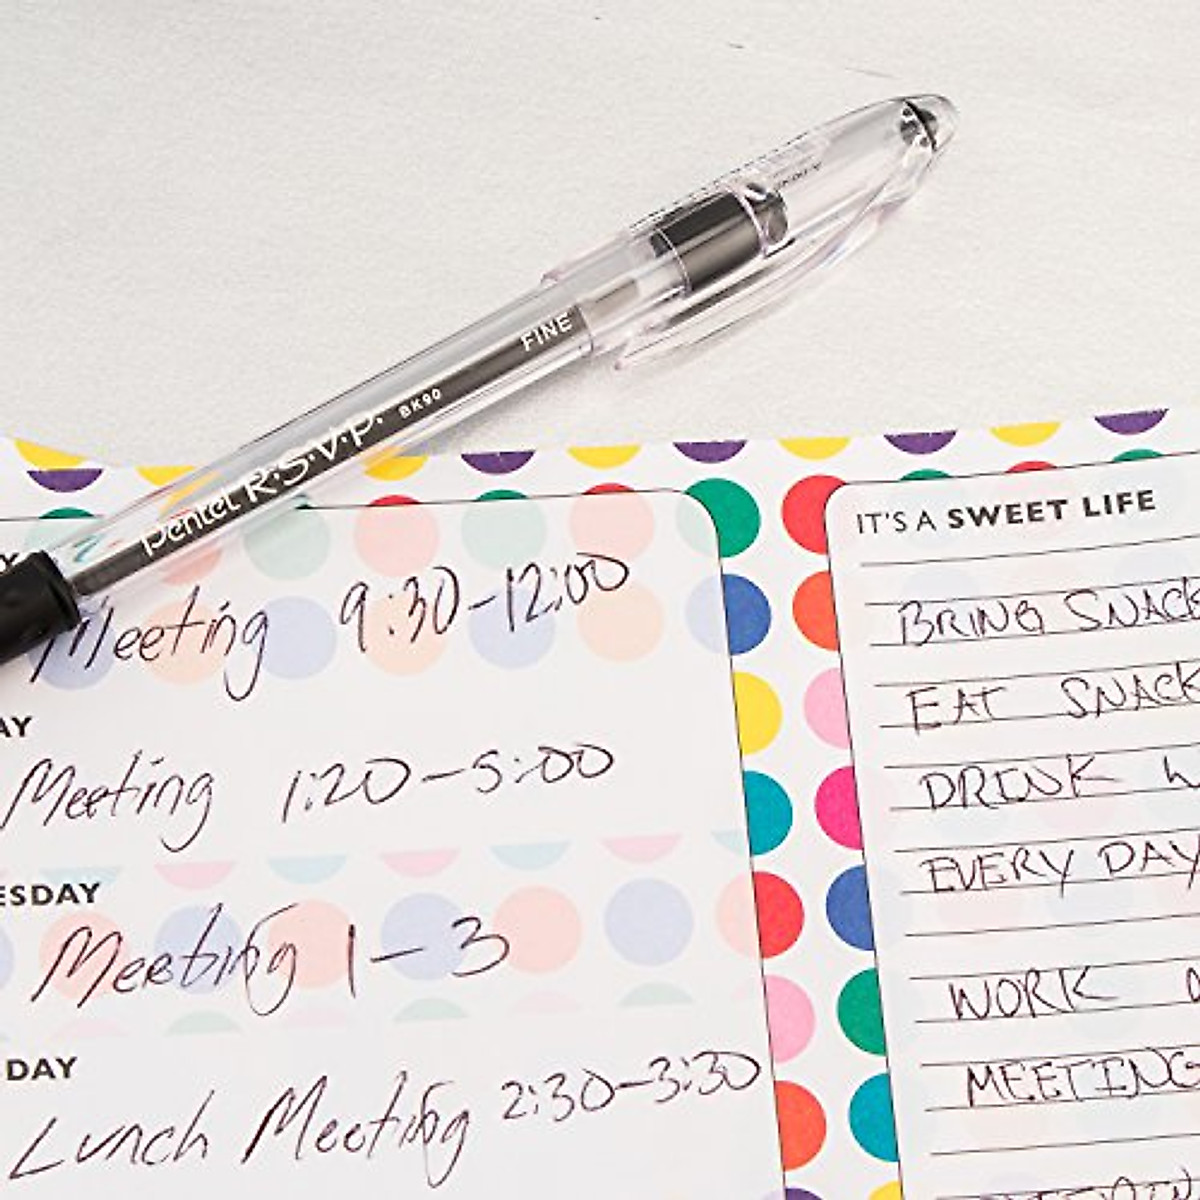 FINE
BK90
Pentel R.S.V.P.
Meeting 9:30-12:00
AY
Meeting 1:20-5:00
ESDAY
Meeting 1-3
DAY
Lunch Meeting 2:30-3:30
IT'S A SWEET LIFE
BRING SNACK
EAT SNACK
DRINK
EVERY DAY
WORK
MEETING